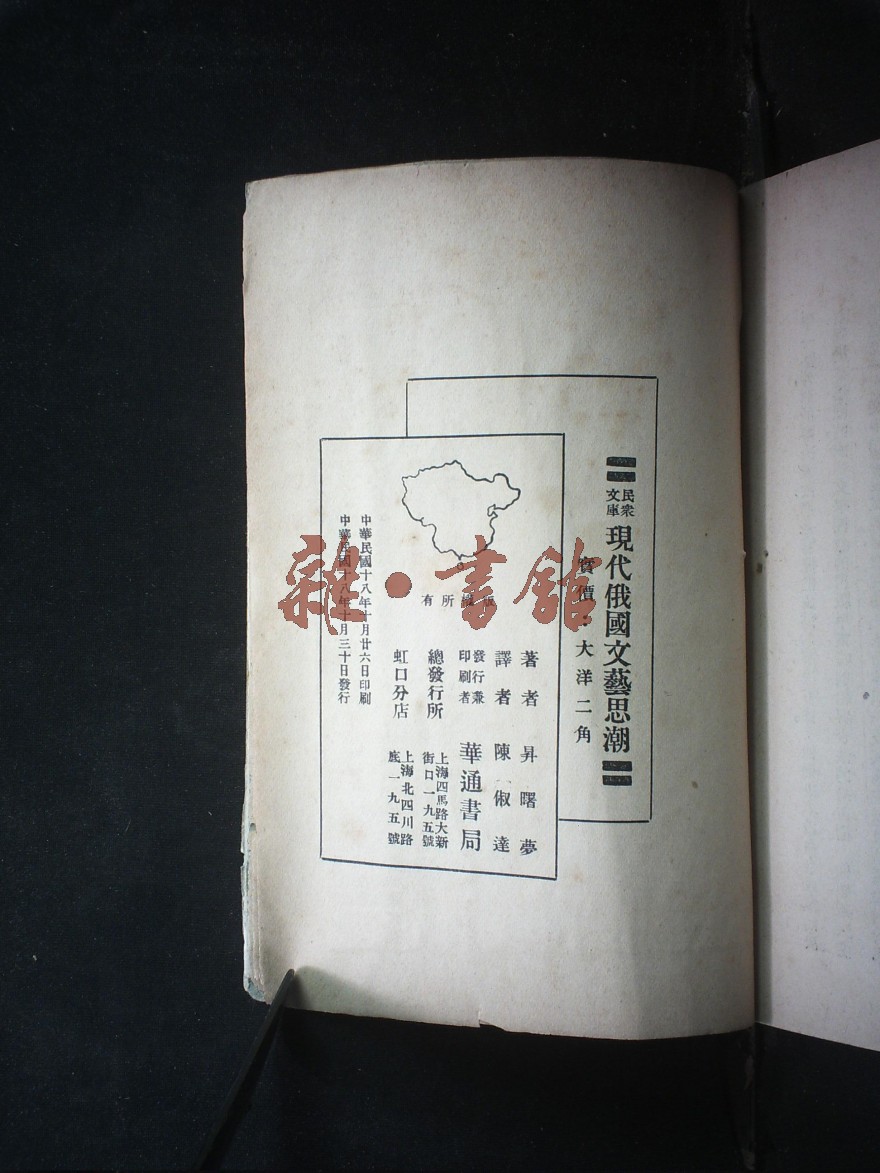 民衆文庫
現代俄國文藝思潮
實價：大洋二角
版權所有
著者 昇曙夢
譯者 陳俶達
發行兼印刷者 華通書局
總發行所 上海四馬路大新街口一九五號
虹口分店 上海北四川路底一九五號
中華民國十八年十月廿六日印刷
中華民國十八年十月三十日發行
雜·書館